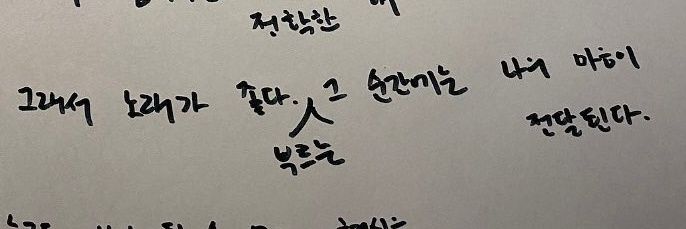 정확한
그래서 노래가 좋다. 그 순간에는 나의 마음이
부르는
전달된다.